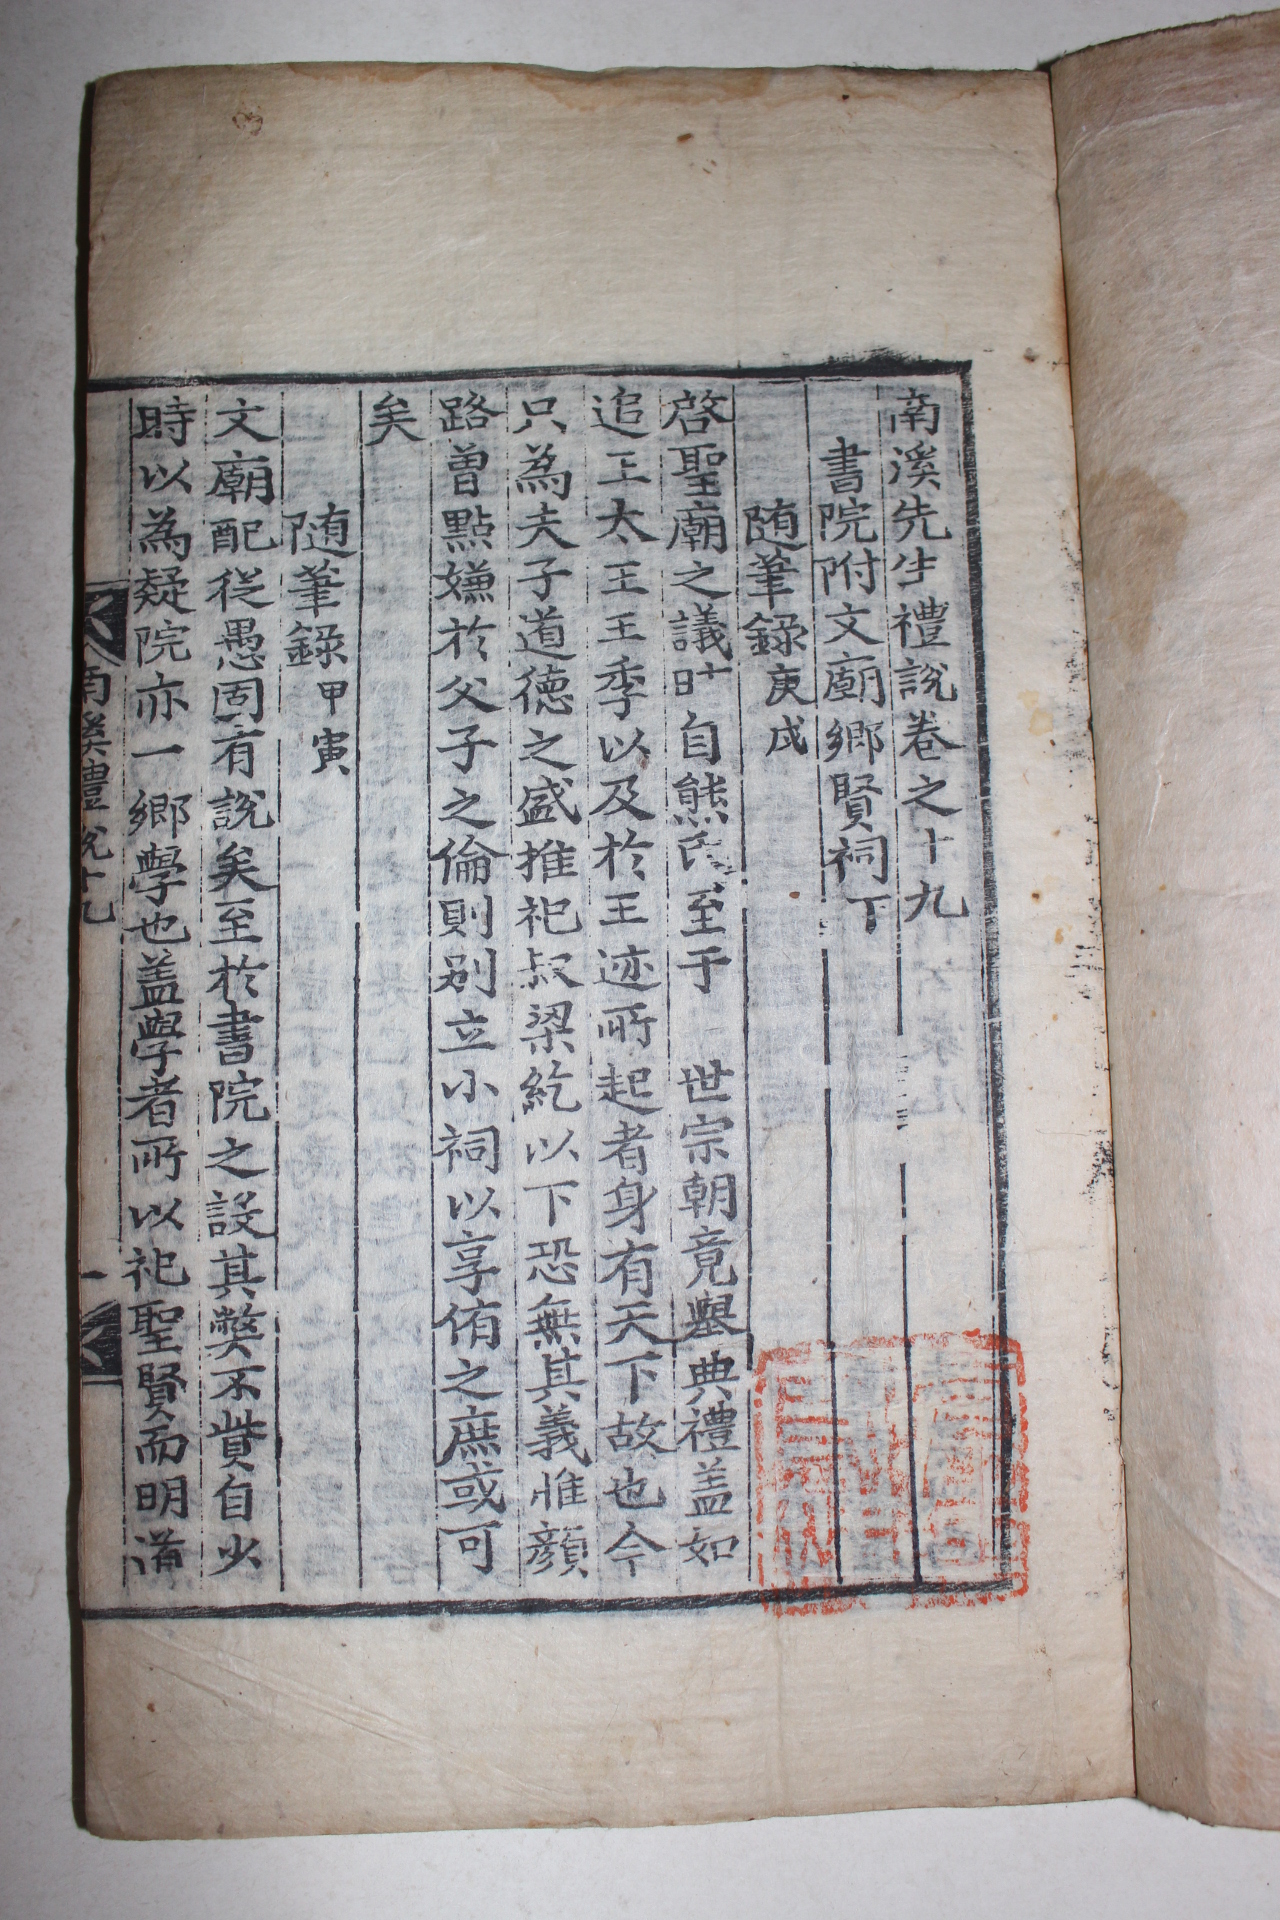 南溪先生禮說卷之十九
書院附文廟鄕賢祠下
随筆錄庚戌
啓聖廟之議昉自熊氏至于 世宗朝竟擧典禮盖如
追王太王王季以及於王迹所起者身有天下故也今
只為夫子道德之盛推祀叔梁紇以下恐無其義惟顔
路曾點嫌於父子之倫則別立小祠以享侑之庶或可
矣
随筆錄甲寅
文廟配從愚固有說矣至於書院之設其弊不貲自少
時以為疑院亦一鄕學也盖學者所以祀聖賢而明道
南溪禮說十九
一